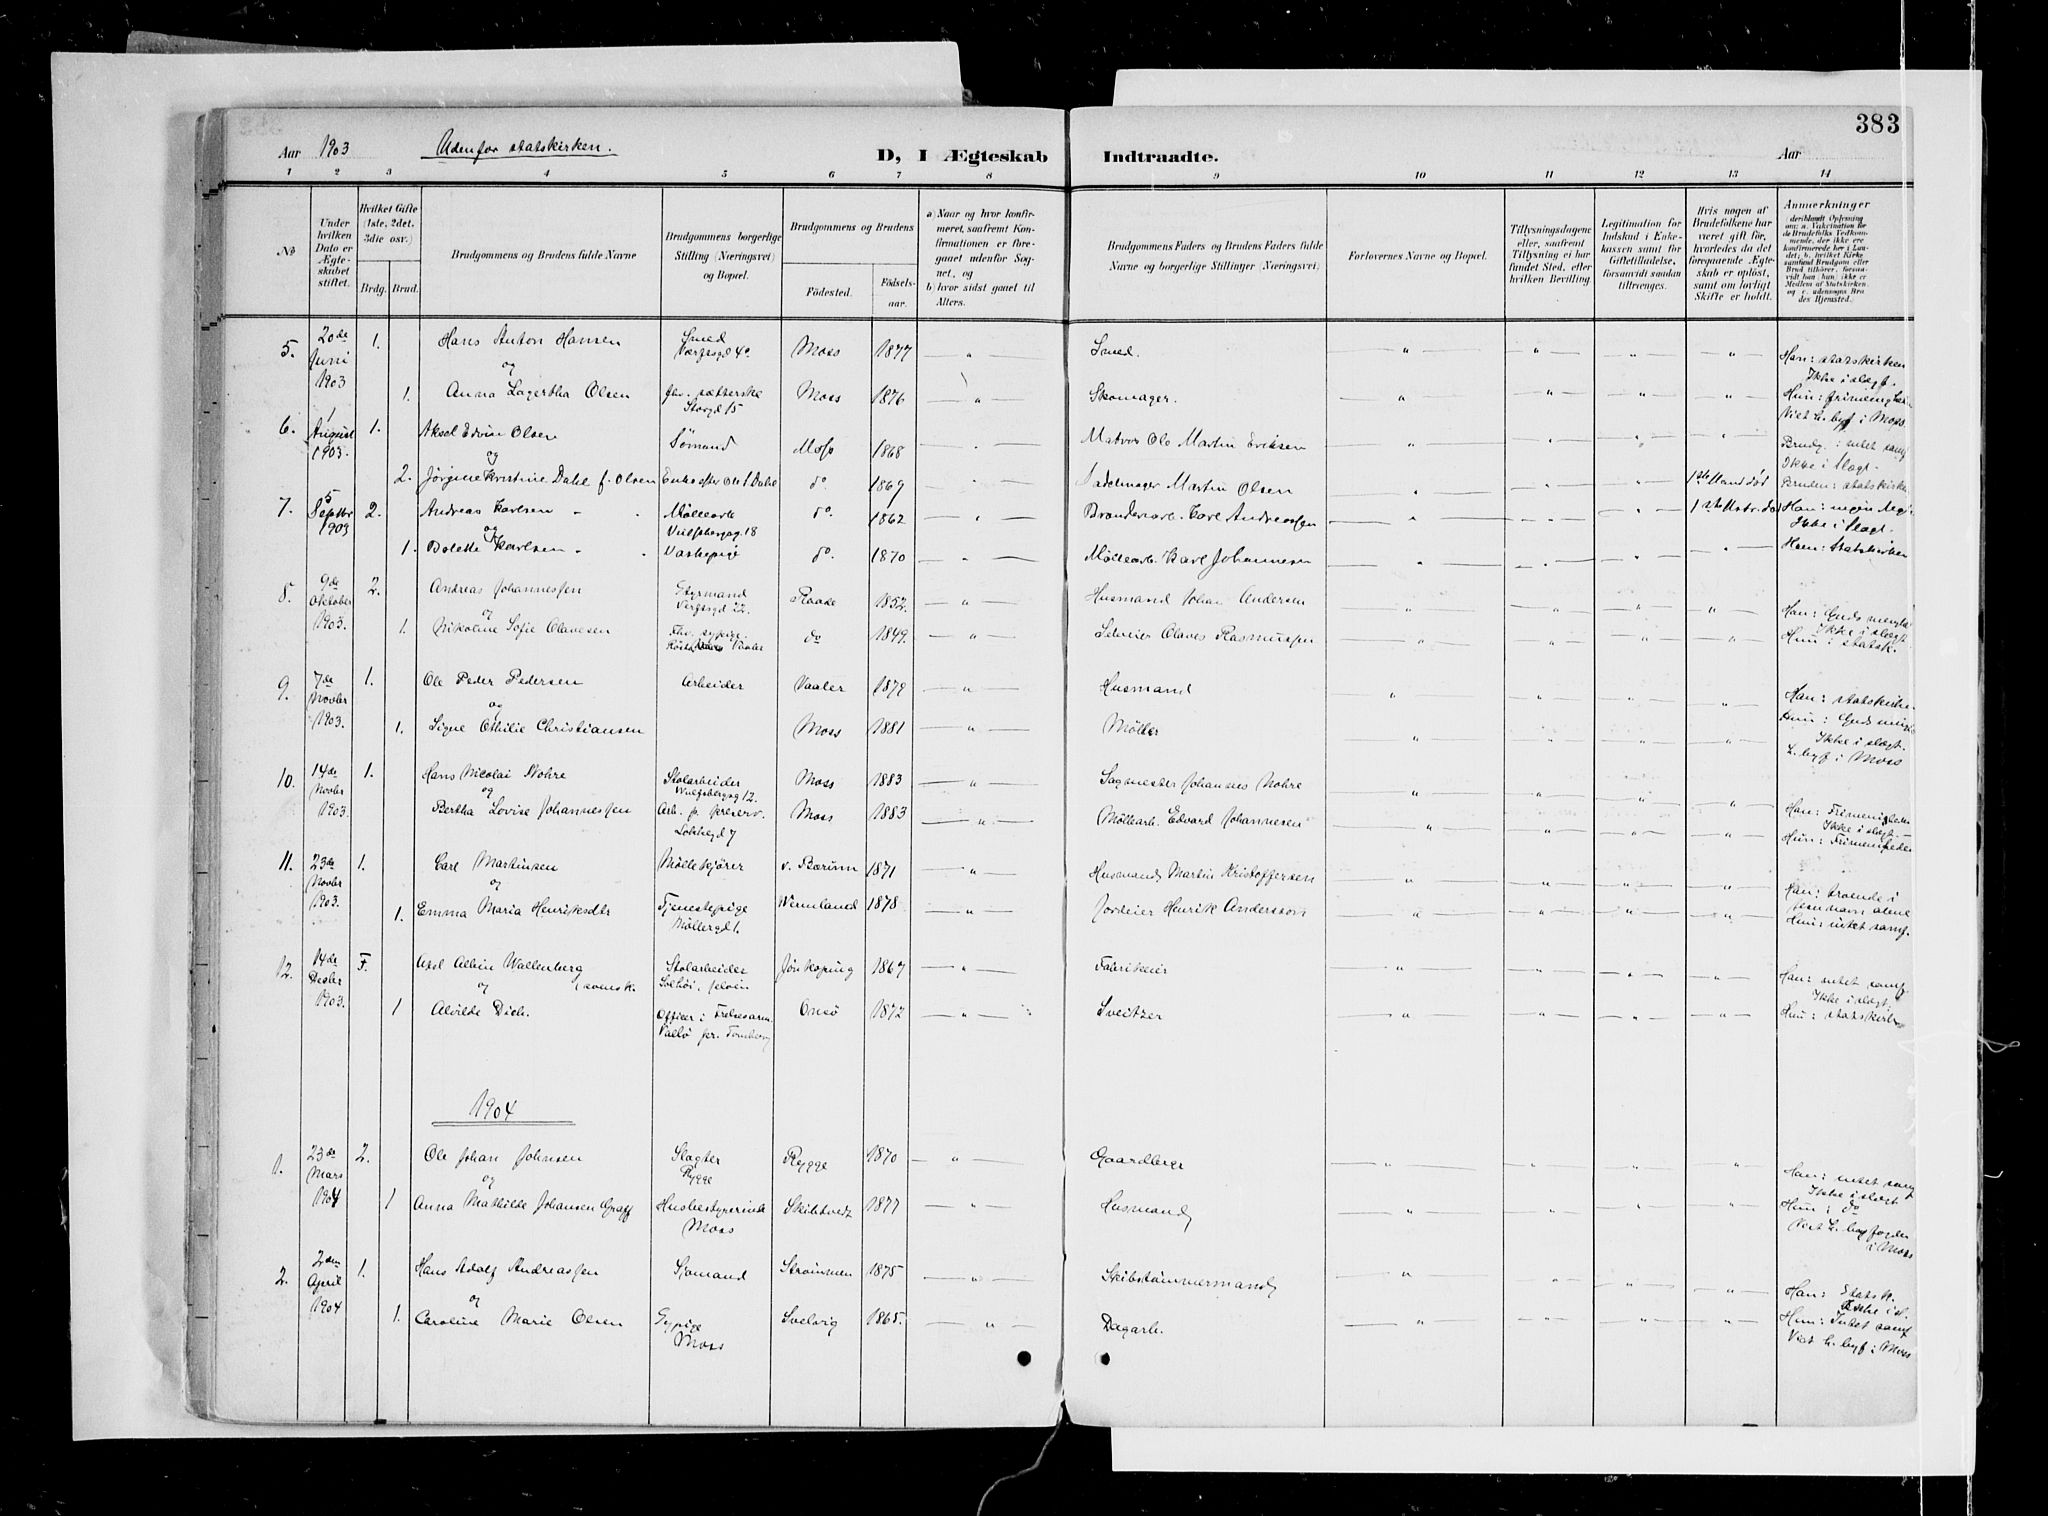 383
Aar 1903 Udenfor statskirken. D, I Ægteskab Indtraadte. Aar
1 2 3 4 5 6 7 8 9 10 11 12 13 14
No
Under hvilken Dato er Ægteskabet stiftet.
Hvilket Gifte (1ste, 2det, 3die osv.)
Brdg. Brud.
Brudgommens og Brudens fulde Navne
Brudgommens borgerlige Stilling (Næringsvei) og Bopæl.
Brudgommens og Brudens
Fødested. Fødselsaar.
a) Naar og hvor konfirmeret, saafremt Konfirmationen er foregaaet udenfor Sognet, og
b) hvor sidst gaaet til Alters.
Brudgommens Faders og Brudens Faders fulde Navne og borgerlige Stillinger (Næringsvei)
Forlovernes Navne og Bopæl.
Tillysningsdagene eller, saafremt Tillysning ei har fundet Sted, efter hvilken Bevilling.
Legitimation for Indskud i Enkekassen samt for Giftetilladelse, forsaavidt saadan tiltrænges.
Hvis nogen af Brudefolkene har været gift før, hvorledes da det foregaaende Ægteskab er opløst, samt om lovligt Skifte er holdt.
Anmerkninger
5. 20de Juni 1903 1. Hans Anton Hansen Smed Værftsgd 40 Moss 1877 " Smed. " " " " Han: statskirken
og Ikke i slægt.
1. Anna Lagertha Olsen Storgd 15 Moss 1876 " Skomager. " " " "
Viet h. byf. i Moss
6. 1 August 1903. 1. Aksel Edvin Olsen Sømand Moss 1868 " Ole Martin Eriksen " " " " Brudg.: intet samf
og Ikke i Slægt.
2. Jørgine Kristine Dahl f. Olsen Enke efter Ole Dahl do 1869 Sadelmager Martin Olsen " " " 1ste Mand død Bruden: statskirke
7. 5 Septbr 1903 2. Andreas Karlsen Møllearb Wulfsbergsg. 18 do 1862 " Karl Andreassen " " " Han: ingen
og Ikke i Slægt.
1. Bolette Karlsen Vaskepige do. 1870 " Møllearb. Karl Johannesen " " " " Hun: Statskirken
8. 9de Oktober 1903. 2. Andreas Johannessen Styrmand Værftsgd 22. Raade 1852. " Husmand Johan Andersen " " " "
og Ikke i slægt
1. Nikoline Sofie Olavesen Fhv. sypige. Vaaler do 1849. " Selveier Olaves Rasmussen " " " " Hun: statsk.
9. 7de Novbr 1903. 1. Ole Peder Pedersen Arbeider Vaaler 1879 " Husmand " " " " Han: statskirken
og
1. Signe Othilie Christiansen Moss 1881 " Møller " " " " Ikke i slægt.
h. byf i Moss
10. 14de Novbr 1903. 1. Hans Nicolai Nohre Stolarbeider Wulfsbergsg 12. Moss 1883 " Sagmester Johannes Nohre " " " "
og Ikke i slægt.
Bertha Lovise Johannessen Arb. p. preserv. Moss 1883 " Møllearb. Edvard Johannesen " " " "
11. 23de Novbr 1903. 1. Carl Martinsen Møllekjører v. Bærum 1871 " Husmand Martin Kristoffersen " " " " Han: troende i Jesu navn alene
og
1. Emma Maria Henriksdtr Tjenestepige Møllergd 1. Wermland 1878 " Jordeier Henrik Andersson " " " " Hun: intet samf.
12. 14de Decbr 1903. F. Axel Albin Wallenberg svensk. Stolarbeider Jeløen Jønkøping 1867 " Fabrikeier " " " " Han: intet samf.
og Ikke i slægt.
1 Alvilde Officer i Frelsesarm. Valø pr. Tønsberg Onsø 1872 " Sveitzer " " " " Hun: statskirken
1904
1. 23de Mars 1904 2. Ole Johan Johnsen Slagter Rygge Rygge 1870 " Gaardbruger " " " " Han: intet samf
og Ikke i slægt
1 Anna Mathilde Johansen Graff Husbestyrerinde Moss Skibtvedt 1877 " Husmand " " " " Hun: do
i Moss
2. 2den April 1904 1. Hans Adolf Andreassen Sømand Strømmen 1875 " Skibstømmermand " " " " Han: Statsk.
og Ikke i sl.
1. Caroline Marie Olsen Sypige Moss Svelvig 1865. " Dagarb. " " " " Hun: Intet samf
Viet h. byf i Moss